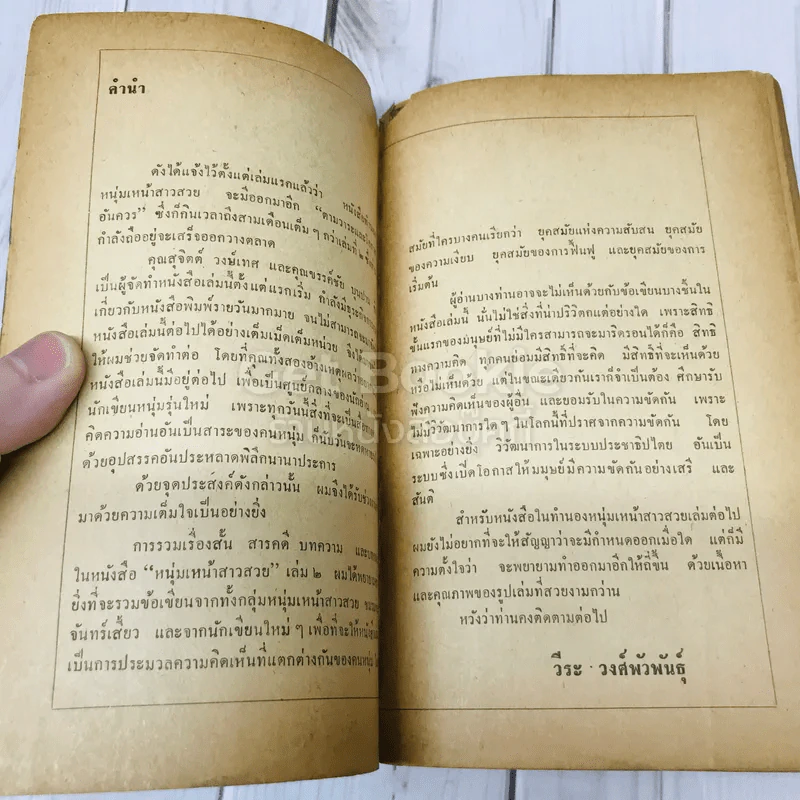 คำนำ
ดังได้แจ้งไว้ตั้งแต่เล่มแรกแล้วว่า หนังสือ
หนุ่มเหน้าสาวสวย จะมีออกมาอีก “ตามวาระและ
อันควร” ซึ่งก็กินเวลาถึงสามเดือนเต็มๆ กว่าเล่มที่ ๒
กำลังถืออยู่จะเสร็จออกวางตลาด
คุณสุจิตต์ วงษ์เทศ และคุณขรรค์ชัย บุนปาน
เป็นผู้จัดทำหนังสือเล่มนี้ตั้งแต่แรกเริ่ม กำลังมีธุระ
เกี่ยวกับหนังสือพิมพ์รายวันมากมาย จนไม่สามารถ
หนังสือเล่มนี้ต่อไปได้อย่างเต็มเม็ดเต็มหน่วย จึงได้
ให้ผมช่วยจัดทำต่อ โดยที่คุณทั้งสองอ้างเหตุผลว่า
หนังสือเล่มนี้มีอยู่ต่อไป เพื่อเป็นศูนย์กลางของนักอ่าน
นักเขียนหนุ่มรุ่นใหม่ เพราะทุกวันนี้สิ่งที่จะเป็น
คิดความอ่านอันเป็นสาระของคนหนุ่ม ก็นับวันจะ
ด้วยอุปสรรคอันประหลาดพิลึกนานาประการ
ด้วยจุดประสงค์ดังกล่าวนั้น ผมจึงได้รับช่วง
มาด้วยความเต็มใจเป็นอย่างยิ่ง
การรวมเรื่องสั้น สารคดี บทความ และ
ในหนังสือ “หนุ่มเหน้าสาวสวย” เล่ม ๒ ผมได้พยายาม
ยิ่งที่จะรวมข้อเขียนจากทั้งกลุ่มหนุ่มเหน้าสาวสวย
จันทร์เสี้ยว และจากนักเขียนใหม่ๆ เพื่อที่จะให้หนังสือ
เป็นการประมวลความคิดเห็นที่แตกต่างกันของคนหนุ่ม
สมัยที่ใครบางคนเรียกว่า ยุคสมัยแห่งความสับสน ยุคสมัย
ของความเงียบ ยุคสมัยของการฟื้นฟู และยุคสมัยของการ
เริ่มต้น
ผู้อ่านบางท่านอาจจะไม่เห็นด้วยกับข้อเขียนบางชิ้นใน
หนังสือเล่มนี้ นั่นไม่ใช่สิ่งที่น่าปริวิตกแต่อย่างใด เพราะสิทธิ
ขั้นแรกของมนุษย์ที่ไม่มีใครสามารถจะมาริดรอนได้ก็คือ สิทธิ
ทางความคิด ทุกคนย่อมมีสิทธิ์ที่จะคิด มีสิทธิ์ที่จะเห็นด้วย
หรือไม่เห็นด้วย แต่ในขณะเดียวกันเราก็จำเป็นต้อง ศึกษารับ
ฟังความคิดเห็นของผู้อื่น และยอมรับในความขัดกัน เพราะ
ไม่มีวิวัฒนาการใดๆ ในโลกนี้ที่ปราศจากความขัดกัน โดย
เฉพาะอย่างยิ่ง วิวัฒนาการในระบบประชาธิปไตย อันเป็น
ระบบซึ่งเปิดโอกาสให้มนุษย์มีความขัดกันอย่างเสรี และ
สันติ
สำหรับหนังสือในทำนองหนุ่มเหน้าสาวสวยเล่มต่อไป
ผมยังไม่อยากที่จะให้สัญญาว่าจะมีกำหนดออกเมื่อใด แต่ก็มี
ความตั้งใจว่า จะพยายามทำออกมาอีกให้ถี่ขึ้น ด้วยเนื้อหา
และคุณภาพของรูปเล่มที่สวยงามกว่าน
หวังว่าท่านคงติดตามต่อไป
วีระ วงศ์พัวพันธุ์